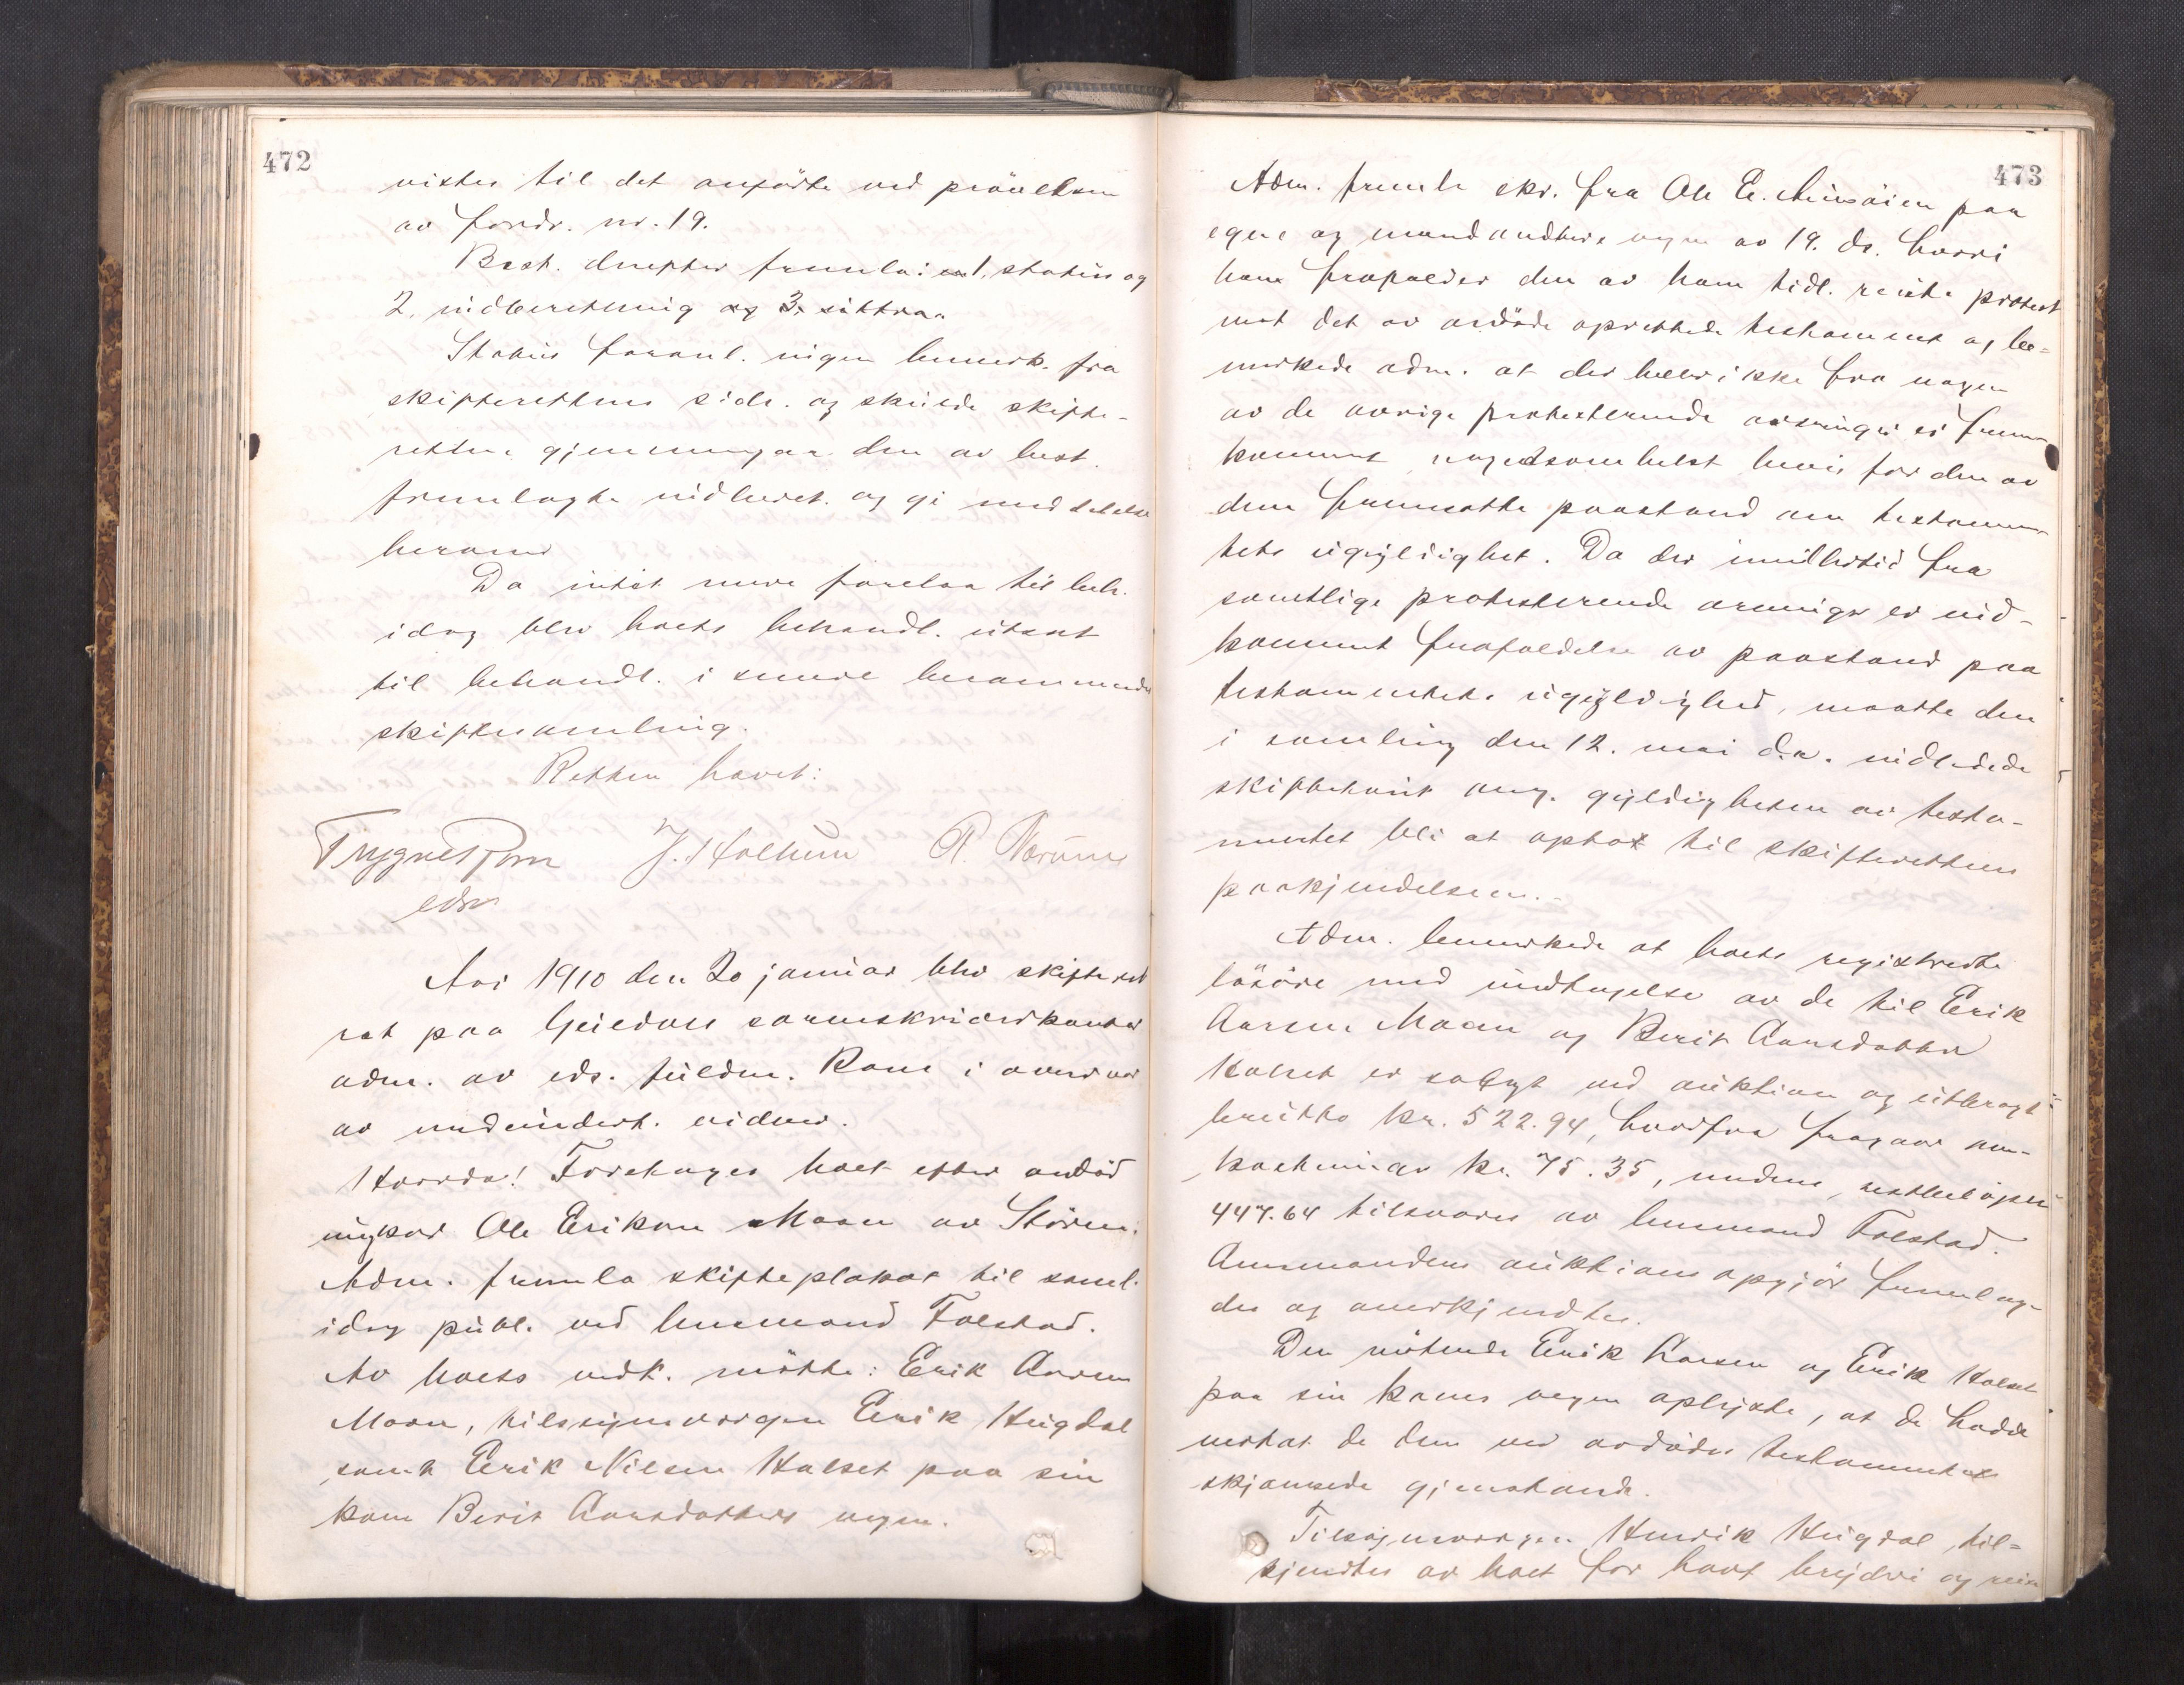 472
vistes til det anførte ved prøvelsen
av fordr. nr. 19.
Best. derefter fremla: 1, status og
2, indberetning 3,
Status foranl. ingen bemerk. fra
skifterettens side. og skulde skifte-
retten gjennemgaa den av best.
fremlagte indberet. og gi meddelelse
herom
Da intet mere forelaa til beh.
idag blev boets behandl. utsat
til behandl. i senere berammende
skiftesamling.
Retten hævet:
J. Holthum
edsv
Aar 1910 den 20 januar blev skifteret
sat paa sorenskriverkontor
adm. av eds. fuldm. Rom i overvær
av undertegn. vidner.
Hvorda! Foretages boet efter avdød
ungkar Ole Eriksen Moen av Støren.
Adm. fremla skifteplakat til saml.
idag publ. ved lensmand Folstad.
Av boets vedk. møtte: Erik Aarsen
Moen, tilsynsvergen Erik Hugdal
samt Erik Nilsen Halset paa sin
kone Berit Aarsdatters vegne.
473
Adm. fremla skr. fra Ole E. paa
egne og vegne av 19. ds. hvori
han fraafalder den av ham tidl. reiste protest
mot det av avdøde oprettede testament og be-
merkede adm. at der heller ikke fra nogen
av de øvrige protesterende arvinger er frem
kommet nogetsomhelst bevis for den av
dem fremsatte paastand om testamen-
tets ugyldighet. Da der imidlertid fra
samtlige protesterende arvinger er ind-
kommet frafaldelse av paastand paa
testamentets ugyldighed, maatte den
i samling den 12. mai d.a. indledede
skiftetvist ang. gyldigheten av testa-
mentet bli at opta til skifterettens
paakjendelse.
Adm. bemerkede at boets registrerte
løsøre med undtagelse av de til Erik
Aarsen Moen og Berit Aarsdatter
Halset er solgt ved auktion og utbragt
brutto kr. 522.94, hvorfra fragaar om-
kostninger kr. 75.35, medens restbeløpet
447.64 tilsvares av lensmand Folstad.
Lensmandens auktionsopgjør fremlag-
des og anerkjendtes.
De møtende Erik Aarsen og Erik Halset
paa sin kones vegne oplyste, at de hadde
mottat de dem ved avdødes testamentet
skjænkede gjenstande.
Tilsynsvergen Henrik Hugdal til-
kjendtes av boet for havt bryderi og reise